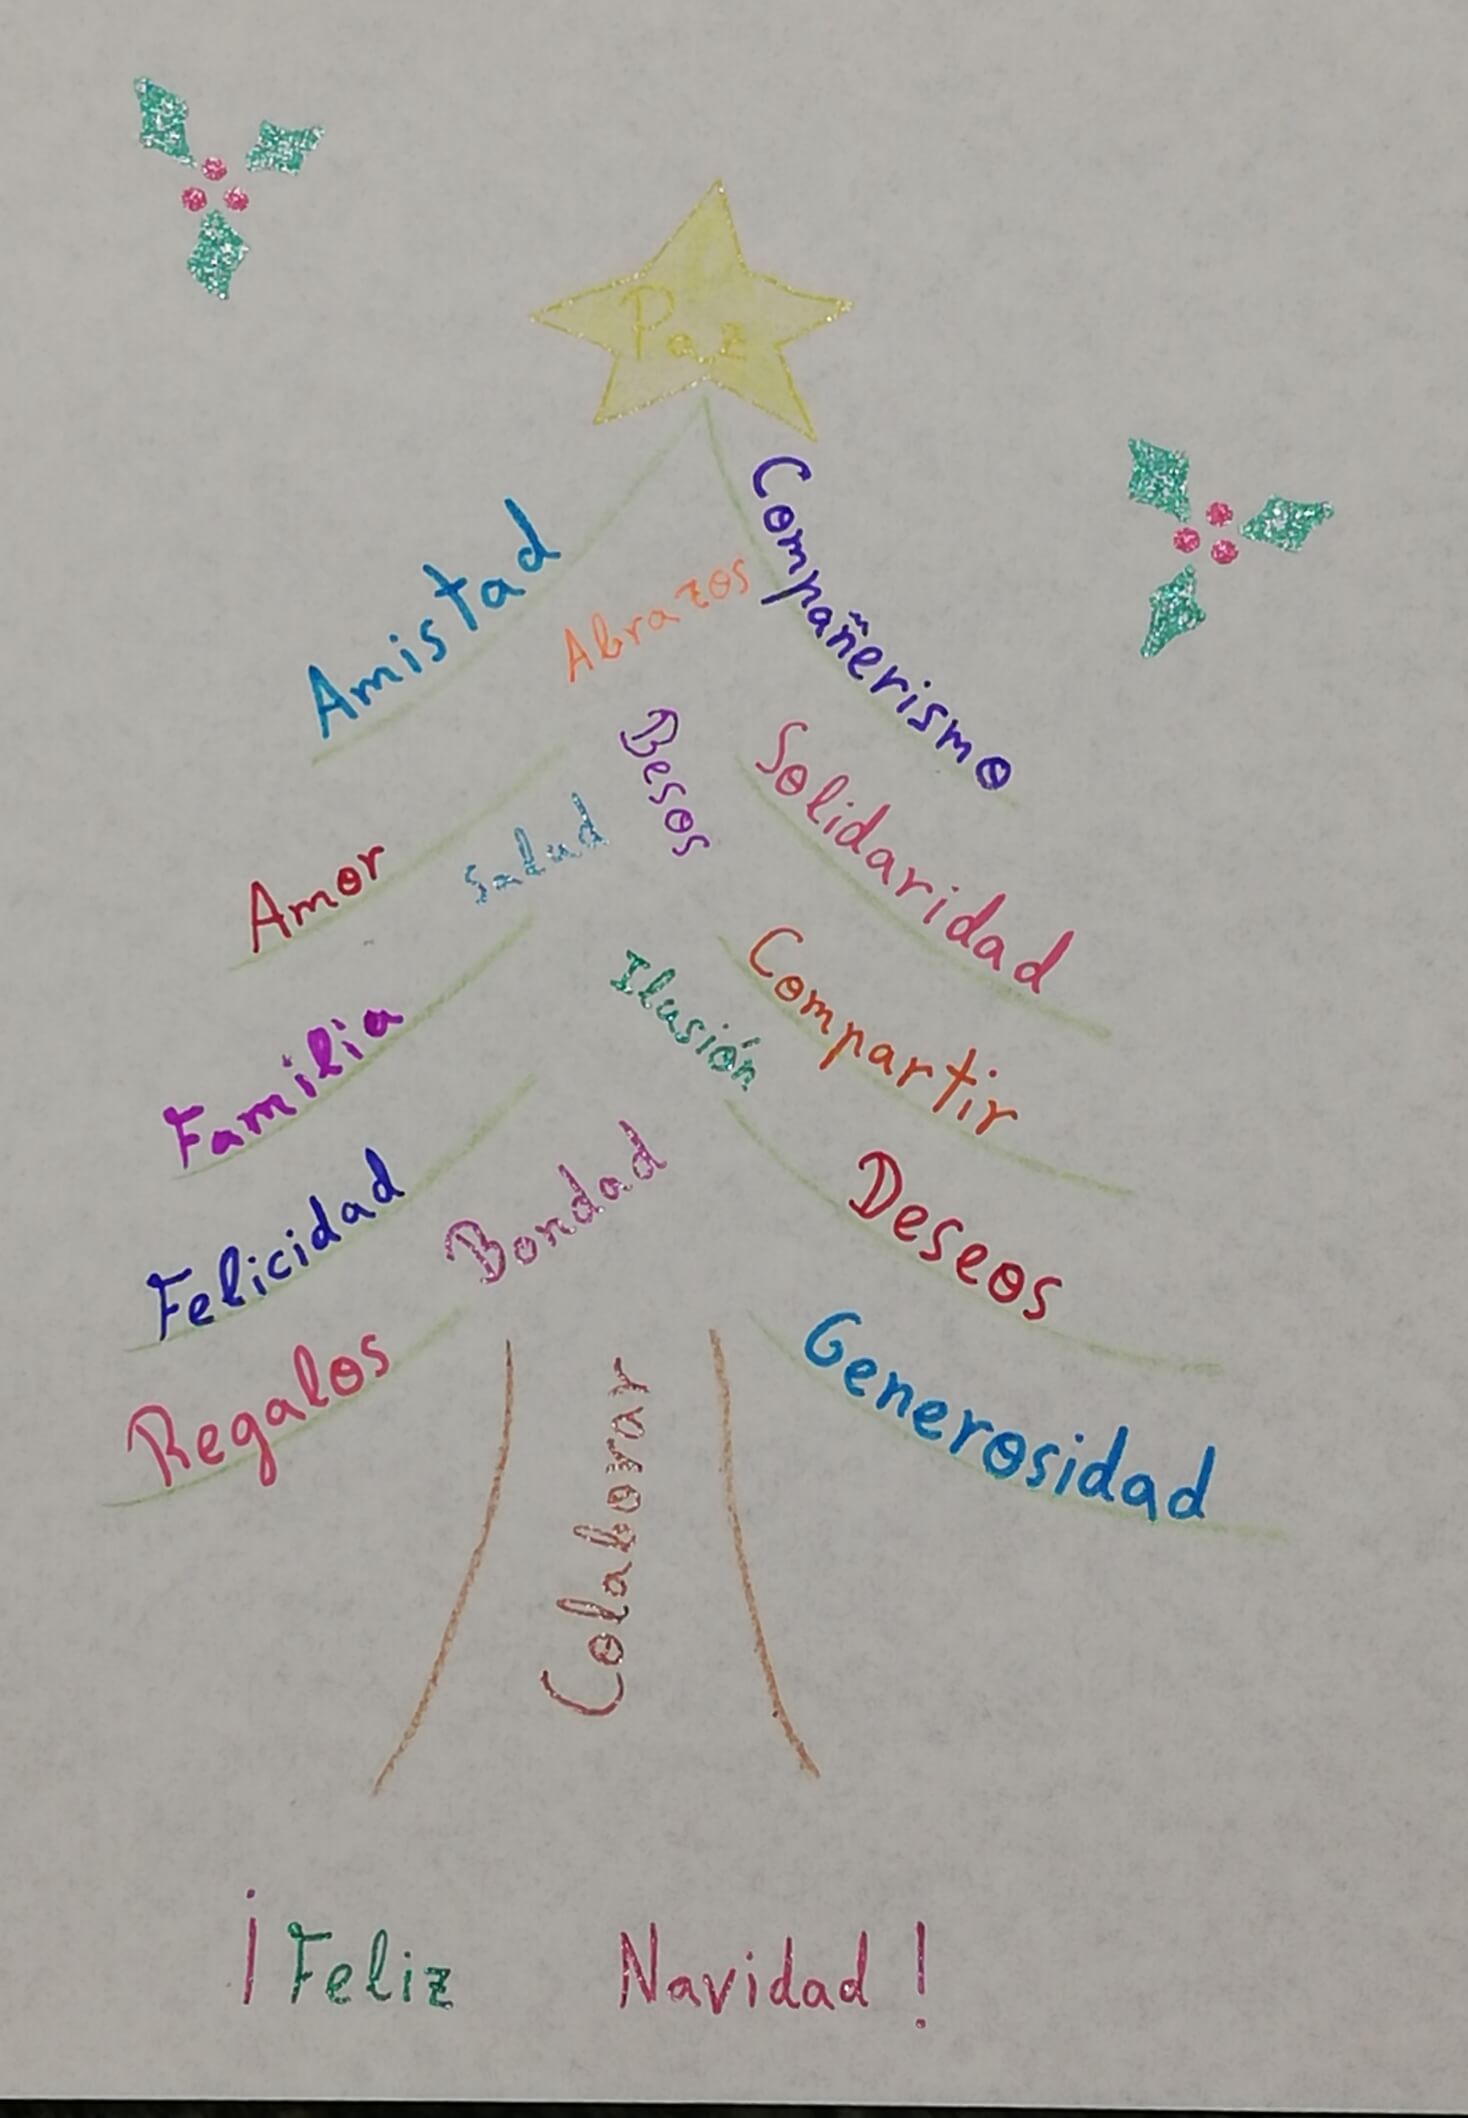 Paz
Amistad
Compañerismo
Abrazos
Besos
Solidaridad
Amor
Salud
Compartir
Ilusión
Familia
Deseos
Felicidad
Bondad
Regalos
Generosidad
Colaborar
¡Feliz Navidad!